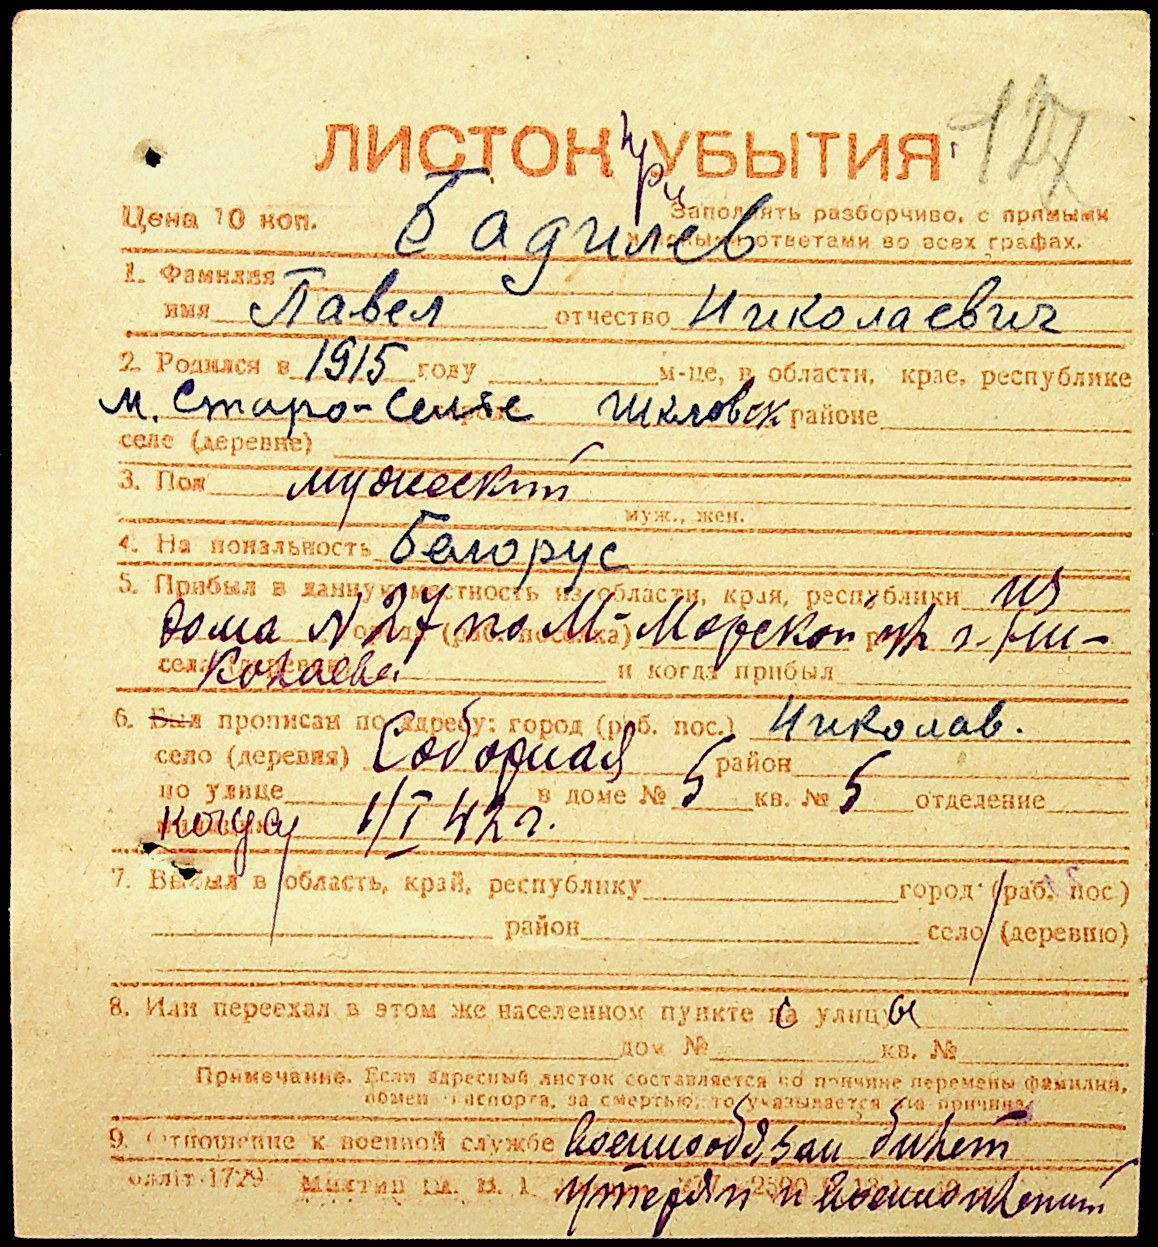 127
ЛИСТОК при УБЫТИЯ
Цена 10 коп. Заполнять разборчиво, с прямыми
и ясными ответами во всех графах.
Бадилев
1. Фамилия
имя Павел отчество Николаевич
2. Родился в 1915 году м-це, в области, крае, республике
м. Старо-Селье Шкловск районе
селе (деревне)
3. Пол мужеский
муж., жен.
4. Национальность Белорус
5. Прибыл в данную местность из области, края, республики из
дома N 27 по М-Морской ул г. Ни-
колаева
села (деревни) и когда прибыл
6. Был прописан по адресу: город (раб. пос.) Николав.
село (деревня) Соборная район
по улице в доме № 5 кв. № 5 отделение
когда 1/I 42 г.
7. Выбыл в область, край, республику город (раб. пос.)
район село (деревню)
8. Или переехал в этом же населенном пункте с улицы
дом № кв. №
Примечание. Если адресный листок составляется по причине перемены фамилии,
номен паспорта, за смертью, то указывается эта причина.
9. Отношение к военной службе военнообязан билет
Облліт 1729
утерян и военнопленный